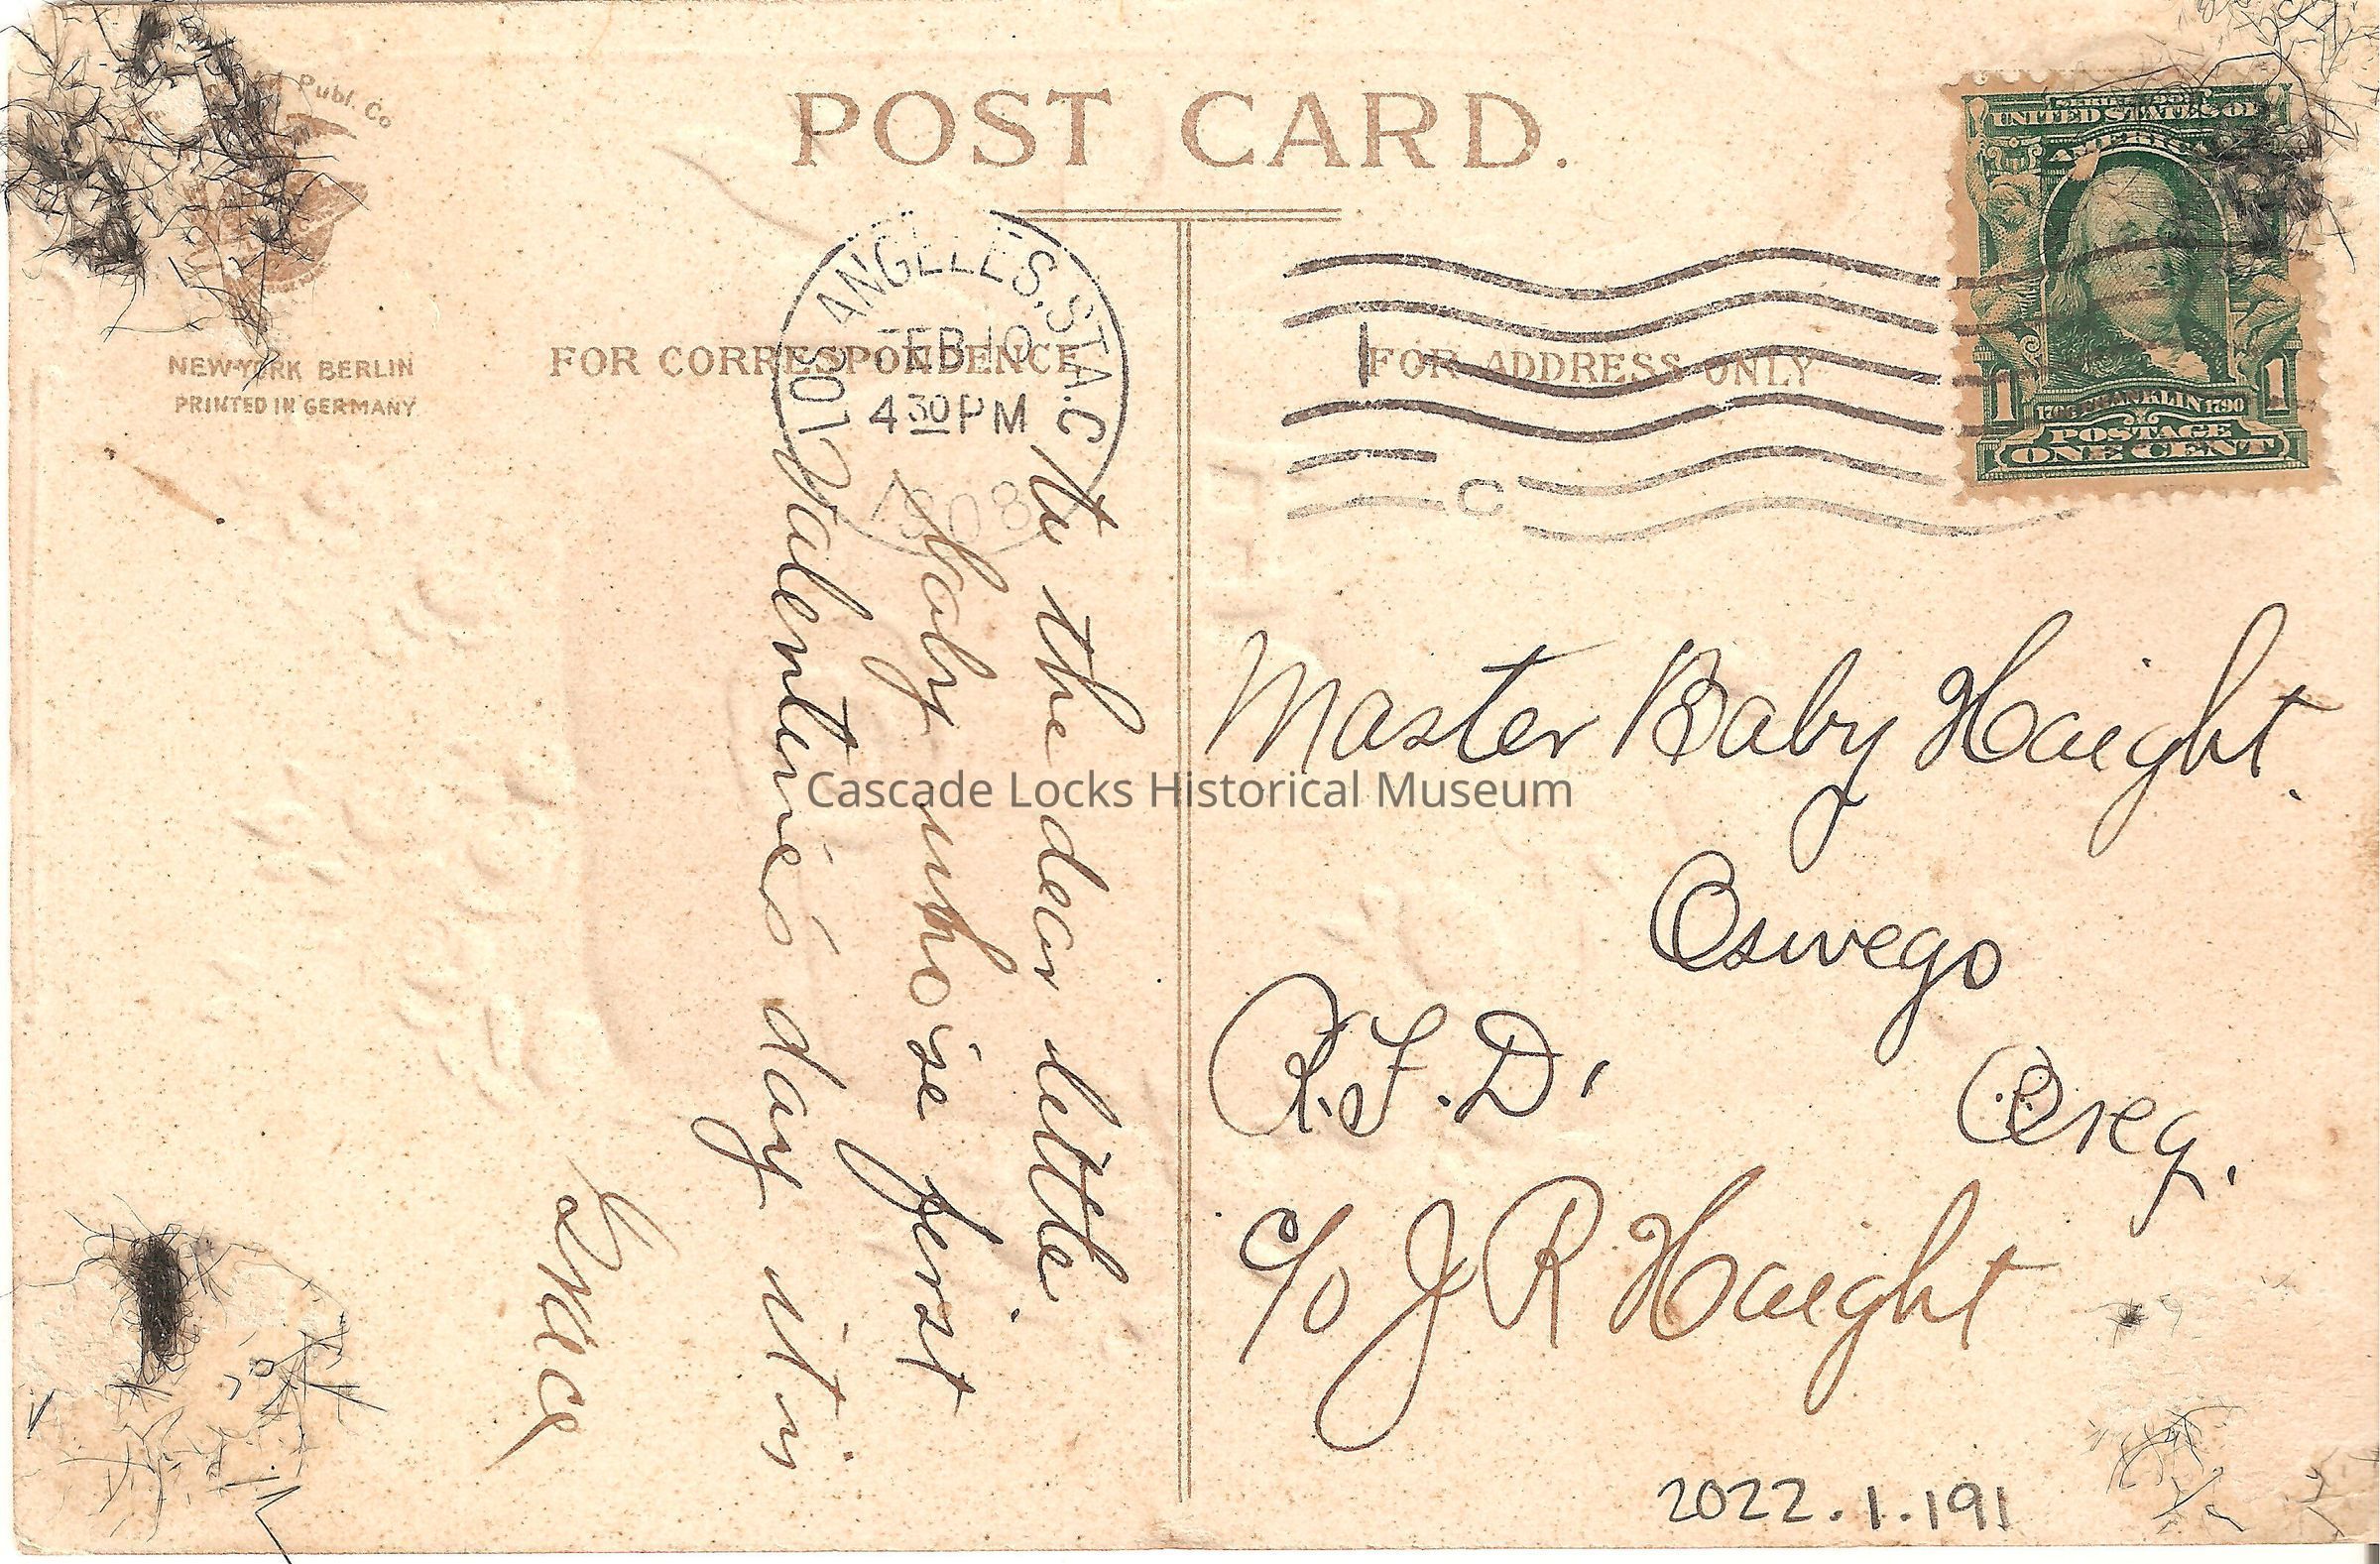 Publ. Co
NEW-YORK BERLIN
PRINTED IN GERMANY
POST CARD.
FOR CORRESPONDENCE
FOR ADDRESS ONLY
LOS ANGELES, STA. C
FEB 10
4 30 PM
1908
C
SERIES 1902
UNITED STATES OF
AMERICA
1706 FRANKLIN 1790
1 1
POSTAGE
ONE CENT
To the dear little
baby whose first
Valentine's day it is
Grace
Master Baby Haight.
Oswego
R.F.D.
Oreg.
c/o J R Haight
Cascade Locks Historical Museum
2022.1.191